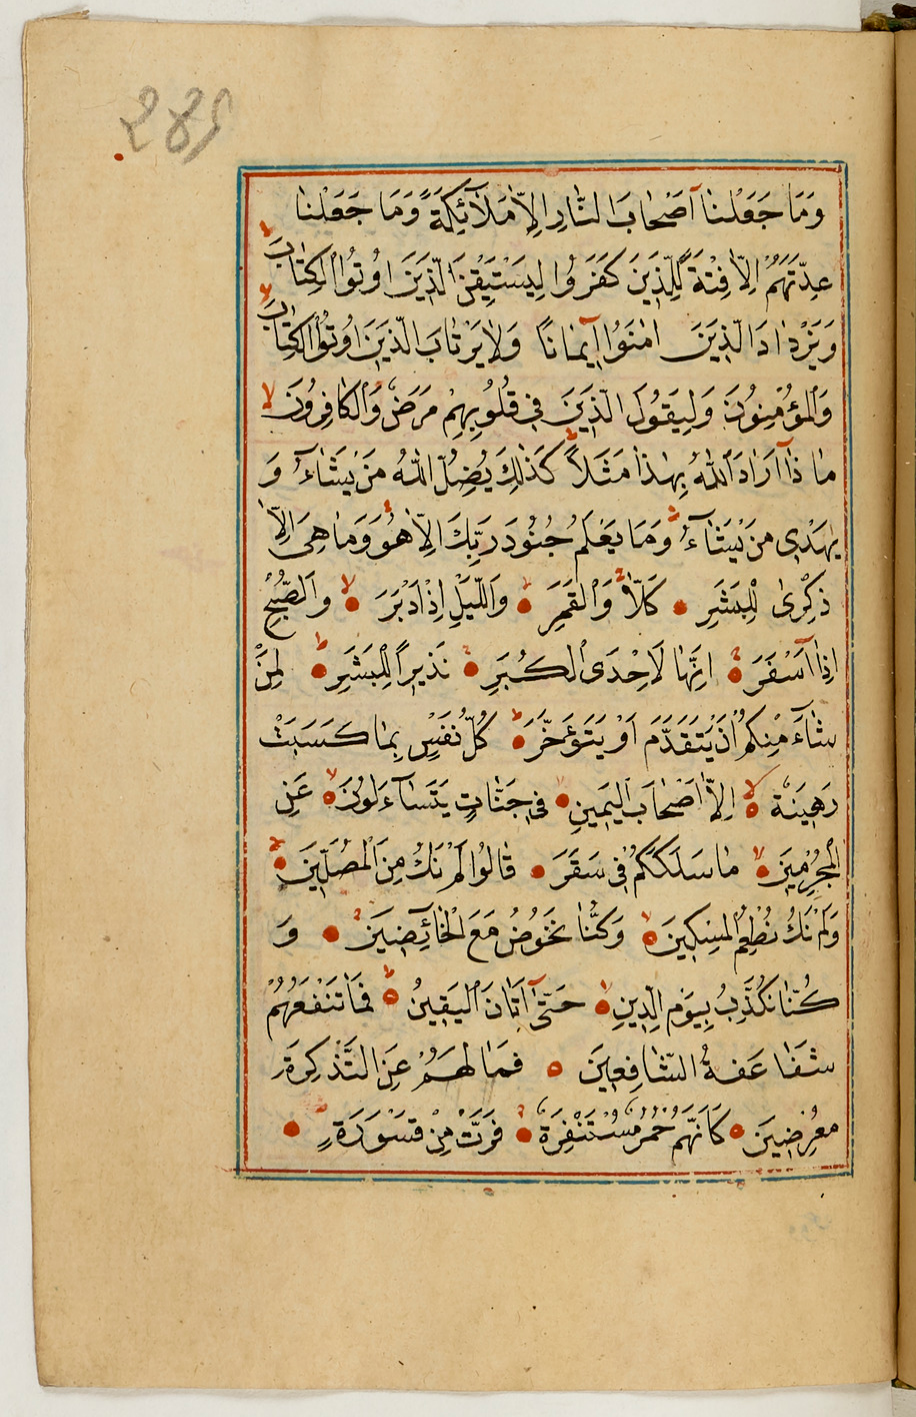 289
وَمَا جَعَلْنَا اَصْحَابَ النَّارِ اِلَّا مَلَٓائِكَةً وَمَا جَعَلْنَا
عِدَّتَهُمْ اِلَّا فِتْنَةً لِلَّذِينَ كَفَرُوا لِيَسْتَيْقِنَ الَّذِينَ اُوتُوا الْكِتَابَ
وَيَزْدَادَ الَّذِينَ اٰمَنُوا اِيمَانًا وَلَا يَرْتَابَ الَّذِينَ اُوتُوا الْكِتَابَ
وَالْمُؤْمِنُونَ وَلِيَقُولَ الَّذِينَ فِي قُلُوبِهِمْ مَرَضٌ وَالْكَافِرُونَ
مَا ذَٓا اَرَادَ اللّٰهُ بِهٰذَا مَثَلًا كَذٰلِكَ يُضِلُّ اللّٰهُ مَنْ يَشَٓاءُ وَ
يَهْدِي مَنْ يَشَٓاءُ وَمَا يَعْلَمُ جُنُودَ رَبِّكَ اِلَّا هُوَ وَمَا هِيَ اِلَّا
ذِكْرٰى لِلْبَشَرِ كَلَّا وَالْقَمَرِ وَالَّيْلِ اِذْ اَدْبَرَ وَالصُّبْحِ
اِذَٓا اَسْفَرَ اِنَّهَا لَاِحْدَى الْكُبَرِ نَذِيرًا لِلْبَشَرِ لِمَنْ
شَٓاءَ مِنْكُمْ اَنْ يَتَقَدَّمَ اَوْ يَتَوَءَخَّرَ كُلُّ نَفْسٍ بِمَا كَسَبَتْ
رَهِينَةٌ اِلَّا اَصْحَابَ الْيَمِينِ فِي جَنَّاتٍ يَتَسَٓاءَلُونَ عَنِ
الْمُجْرِمِينَ مَا سَلَكَكُمْ فِي سَقَرَ قَالُوا لَمْ نَكُ مِنَ الْمُصَلِّينَ
وَلَمْ نَكُ نُطْعِمُ الْمِسْكِينَ وَكُنَّا نَخُوضُ مَعَ الْخَٓائِضِينَ وَ
كُنَّا نُكَذِّبُ بِيَوْمِ الدِّينِ حَتّٰٓى اَتَانَ الْيَقِينُ فَمَا تَنْفَعُهُمْ
شَفَاعَةُ الشَّافِعِينَ فَمَا لَهُمْ عَنِ التَّذْكِرَةِ
مُعْرِضِينَ كَاَنَّهُمْ حُمُرٌ مُسْتَنْفِرَةٌ فَرَّتْ مِنْ قَسْوَرَةٍ